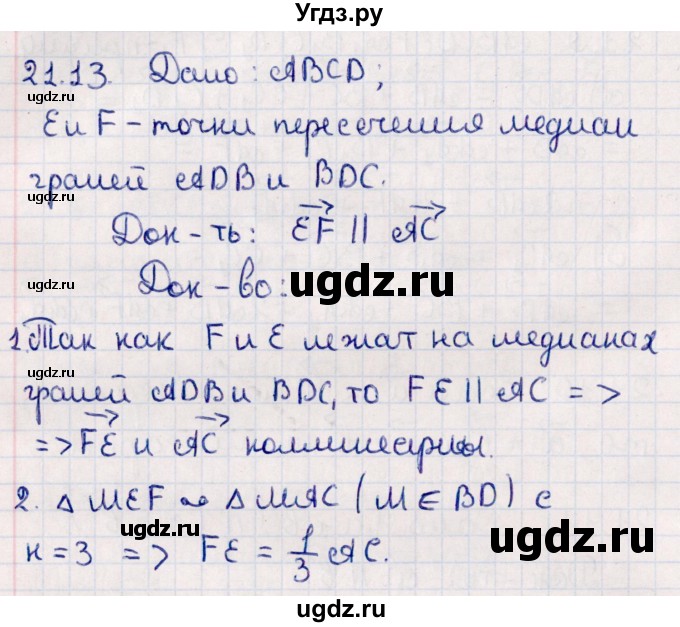 Угдз.ру
21.13. Дано: ABCD;
ugdz.ru
E и F – точки пересечения медиан
граней ADB и BDC.
ugdz.ru
Док-ть: EF || AC
ugdz.ru
ugdz.ru
Док-во:
ugdz.ru
1. Так как F и E лежат на медианах
ugdz.ru
граней ADB и BDC, то FE || AC =>
=> FE и AC коллинеарны.
ugdz.ru
2. △ MEF ~ △ MAC (M ∈ BD) с
ugdz.ru
ugdz.ru
к = 3 => FE = 1/3 AC.
ugdz.ru
ugdz.ru